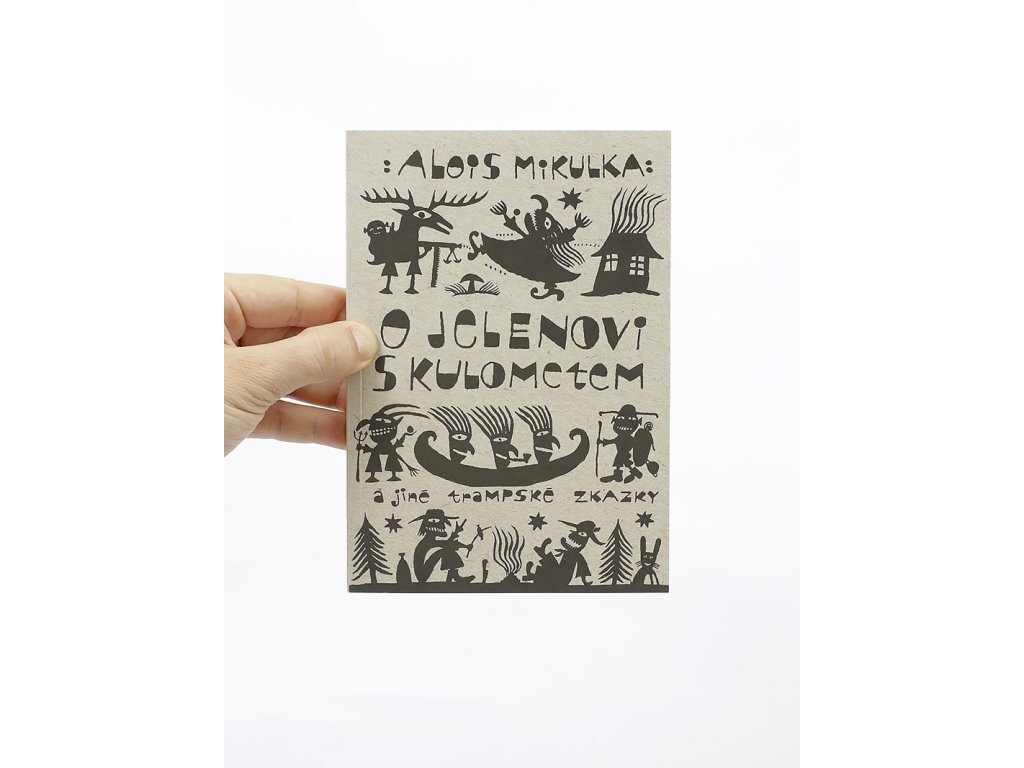 :ALOIS MIKULKA:
O JELENOVI
S KULOMETEM
a jiné trampské zkazky